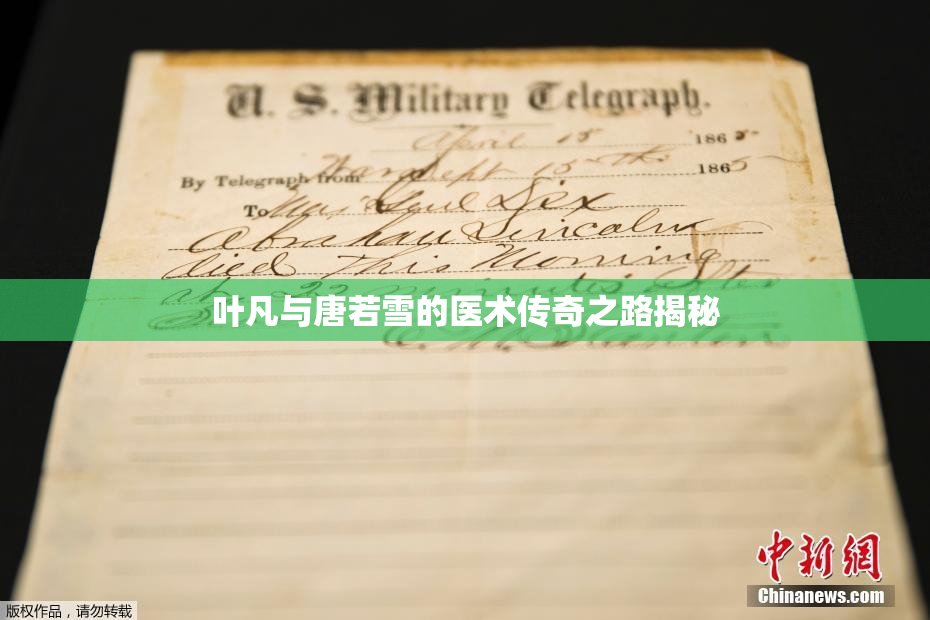 U. S. Military Telegraph.
April 15 1865
By Telegraph from War Dept 15th 1865
To Maj Genl Dix
Abraham Lincoln
died This Morning
at 22 minutes after
叶凡与唐若雪的医术传奇之路揭秘
E. M. Stanton
中新网
Chinanews.com
版权作品,请勿转载